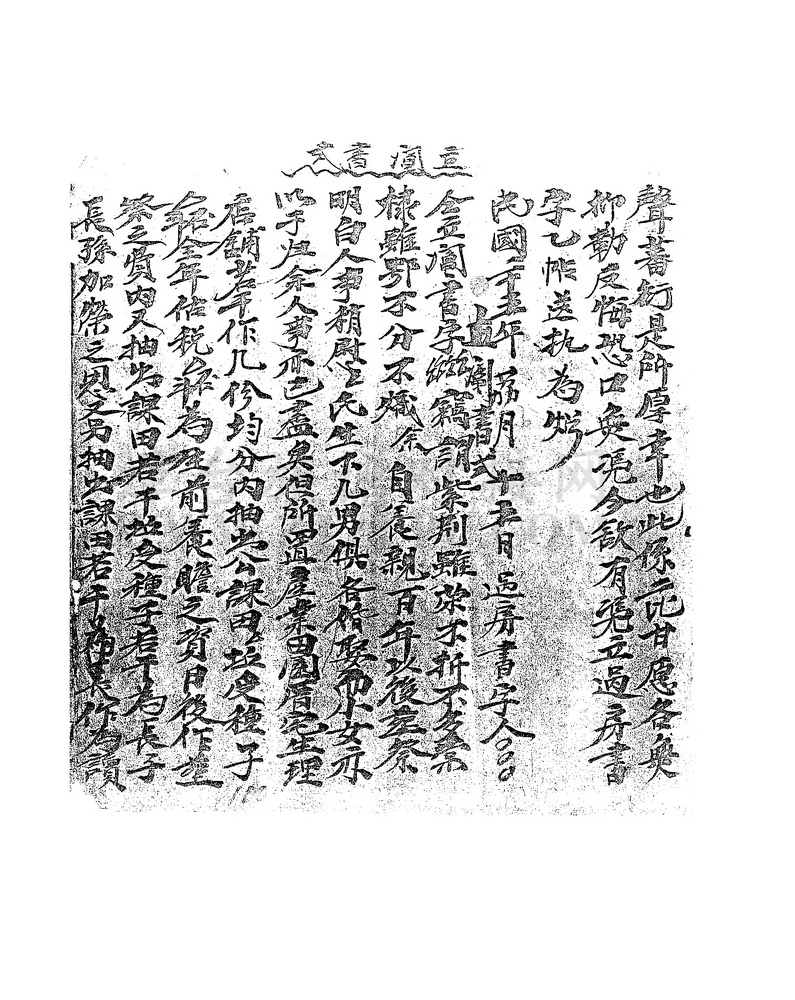 立阄書式
聲蕃衍是所厚幸也此係二比甘愿各無
抑勒反悔恐口無凭今欲有凭立過房書
字乙帋送执為炤
民國二十五年 荔月 十五日 過房書字人○○○
立阄書式
仝立阄書字 窃謂紫荆雖荣不折不多荣
棣雖鄂不分不熾余自養親百年以後塟祭
明白人事稍尉 氏生下几男俱各偕娶而小女亦
以于归余人事亦已盡矣但所置產業田園厝宅生理
店鋪若干作几份均分內抽出公課田坵受種子
全年佃税 為生前養贍之資日後作塟
祭之資內又抽出課田若干坵受種子若干為長子
長孫加荣之 又另抽出課田若干 作為讀